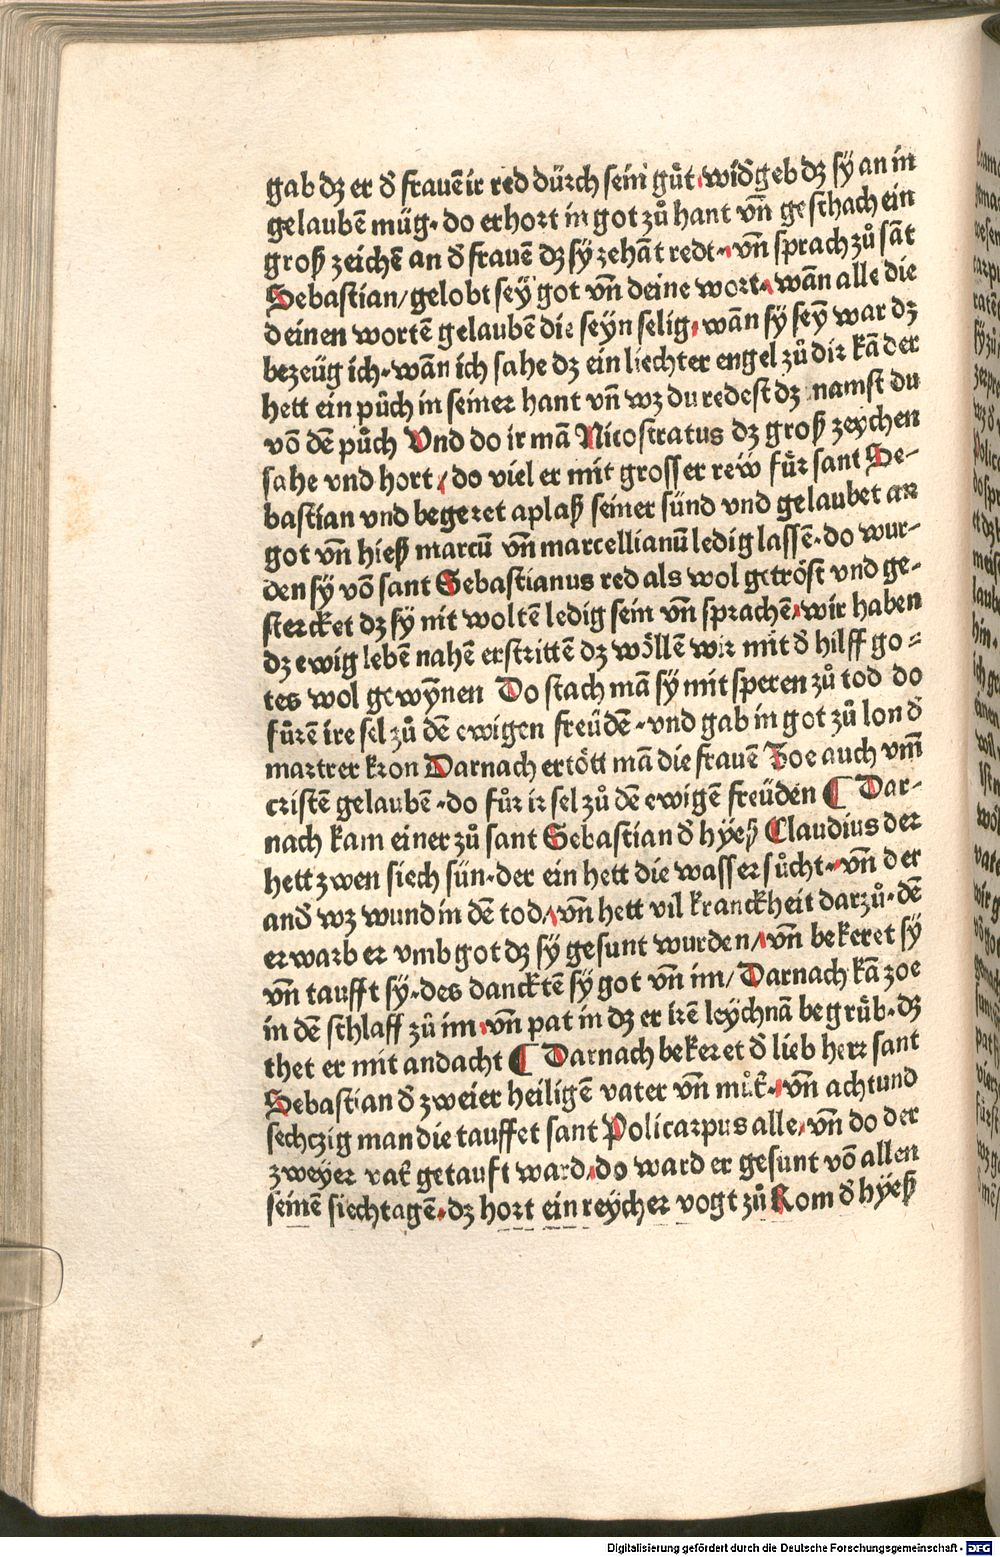 gab dz er đ frauē ir red dürch sein gůt·wiđgeb dz sÿ an in
gelaubē müg· do erhort in got zů hant vn̄ geschach ein
groß zeichē an đ frauē dz sÿ zehāt redt·vn̄ sprach zů sāt
Sebastian/gelobt seÿ got vn̄ deine wort·wān alle die
deinen wortē gelaubē die seÿn selig·wān sÿ seȳ war dz
bezeüg ich·wān ich sahe dz ein liechter engel zů dir kā der
hett ein půch in seiner hant vn̄ wz du redest dz namst du
vō dē půch Vnd do ir mā Nicostratus dz groß zeychen
sahe vnd hort/do viel er mit grosser rew für sant Se-
bastian vnd begeret aplaß seiner sünd vnd gelaubet an
got vn̄ hieß marcū vn̄ marcellianū ledig lassē·do wur-
den sÿ vō sant Sebastianus red als wol getröst vnd ge-
stercket dz sÿ nit woltē ledig sein vn̄ sprachē·wir haben
dz ewig lebē nahē erstrittē dz wöllē wir mit đ hilff go-
tes wol gewÿnen Do stach mā sÿ mit speren zů tod do
fůrē ire sel zů dē ewigen freüdē·vnd gab in got zů lon đ
martrer kron Darnach ertött mā die frauē Zoe auch vm̄
cristē gelaubē·do fůr ir sel zů dē ewigē freüden ¶ Dar-
nach kam einer zů sant Sebastian đ hÿeß Claudius der
hett zwen siech sün·der ein hett die wassersůcht·vn̄ der
anđ wz wund in dē tod/vn̄ hett vil kranckheit darzů·dē
erwarb er vmb got dz sÿ gesunt wurden/vn̄ bekeret sÿ
vn̄ taufft sÿ·des dancktē sÿ got vn̄ im/Darnach kā zoe
in dē schlaff zů im·vn̄ pat in dz er irē leÿchnā begrüb·dz
thet er mit andacht ¶ Darnach bekeret đ lieb herr sant
Sebastian đ zweier heiligē vater vn̄ můt̄·vn̄ acht und
sechczig man die tauffet sant Policarpus alle·vn̄ do der
zweÿer vat̄ getauft ward·do ward er gesunt vō allen
seinē siechtagē·dz hort ein reÿcher vogt zů Rom đ hÿeß
Digitalisierung gefördert durch die Deutsche Forschungsgemeinschaft - DFG